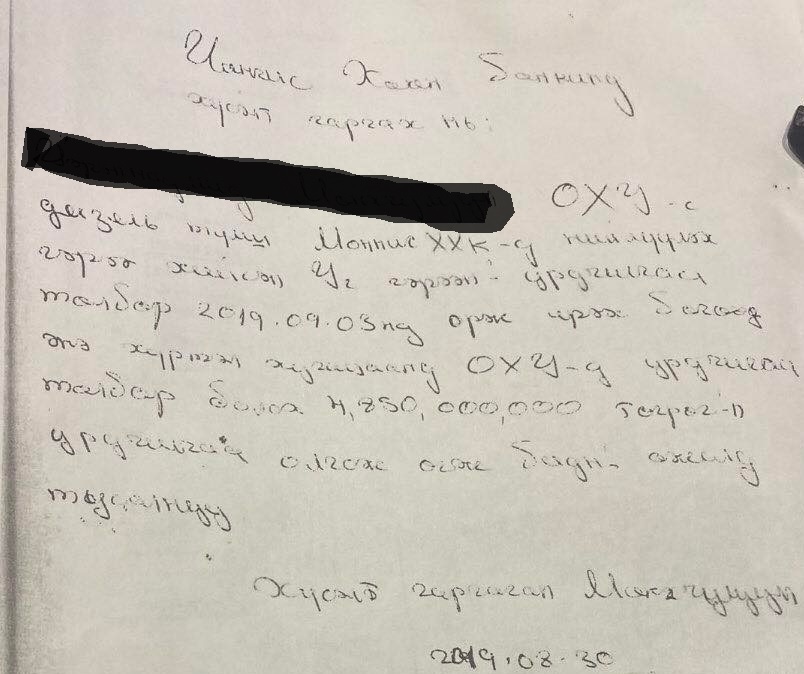 Чингис Хаан банкинд
хүсэлт гаргах нь:
ОХУ-с
дизель түлш Моннис ХХК-д нийлүүлэх
гэрээ хийсэн Уг гэрээн- урдчилгаа
төлбөр 2019.09.03нд орж ирэх бөгөөд
энэ хүртэл хугацаанд ОХУ-д урдчилгаа
төлбөр болох 4,850,000,000 төгрөг-н
урдчилгаа олгож өгж бидн- ажилд
туслана уу
Хүсэлт гаргасан
2019.08.30